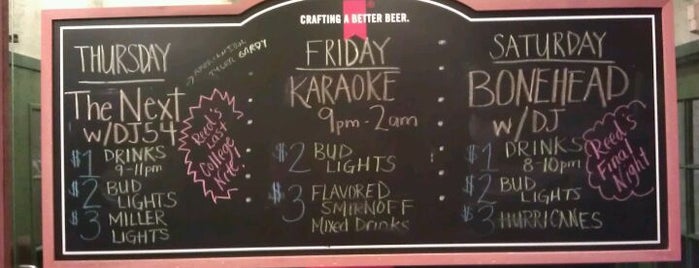 CRAFTING A BETTER BEER.
THURSDAY
The Next
w/DJ54
Reed's
Last
College
Nite!
$1 DRINKS
9-11pm
$2 BUD
LIGHTS
$3 MILLER
LIGHTS
FRIDAY
KARAOKE
9pm-2am
$2 BUD
LIGHTS
$3 FLAVORED
SMIRNOFF
Mixed Drinks
SATURDAY
BONEHEAD
w/DJ
Reed's
Final
Night
$1 DRINKS
8-10pm
$2 BUD
LIGHTS
$3 HURRICANES